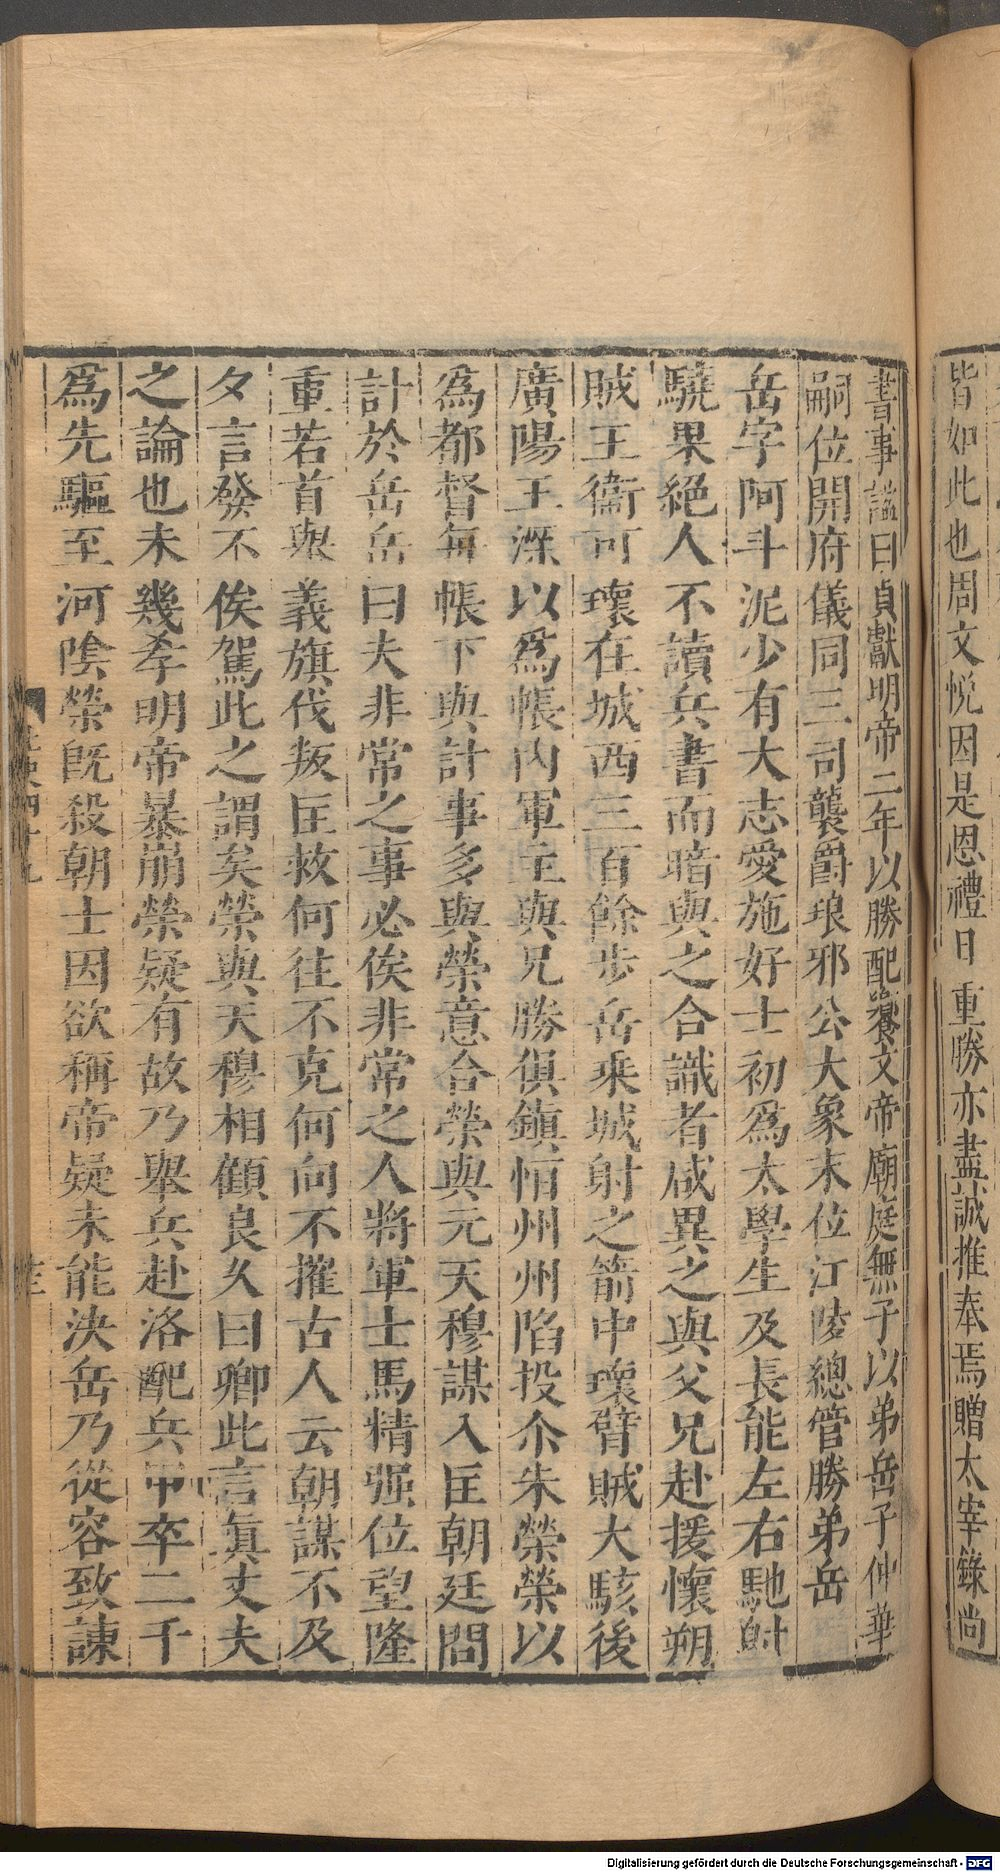 皆如此也周文悅因是恩禮日重勝亦盡誠推奉焉贈太宰錄尚
書事諡曰貞獻明帝二年以勝配饗文帝廟庭無子以弟岳子仲華
嗣位開府儀同三司襲爵琅邪公大象末位江陵總管勝弟岳
岳字阿斗泥少有大志愛施好士初爲太學生及長能左右馳射
驍果絕人不讀兵書而暗與之合識者咸異之與父兄赴援懷朔
賊王衞可瓌在城西三百餘步岳乘城射之箭中瓌臂賊大駭後
廣陽王深以爲帳內軍主與兄勝俱鎮恒州州陷投尒朱榮榮以
爲都督每帳下與計事多與榮意合榮與元天穆謀入匡朝廷問
計於岳岳曰夫非常之事必俟非常之人將軍士馬精强位望隆
重若首舉義旗伐叛匡救何往不克何向不摧古人云朝謀不及
夕言發不俟駕此之謂矣榮與天穆相顧良久曰卿此言眞丈夫
之論也未幾孝明帝暴崩榮疑有故乃舉兵赴洛配兵甲卒二千
爲先驅至河陰榮旣殺朝士因欲稱帝疑未能決岳乃從容致諫
Digitalisierung gefördert durch die Deutsche Forschungsgemeinschaft - DFG